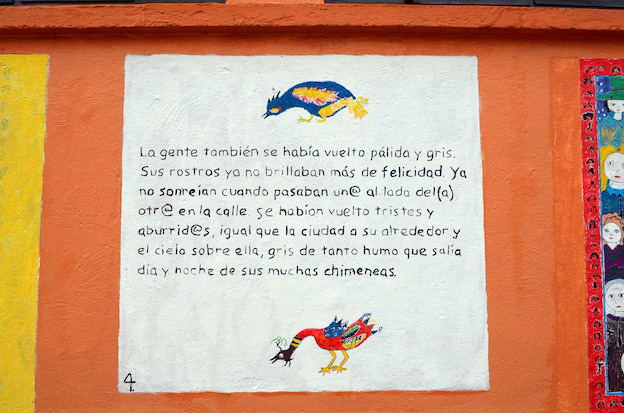 La gente también se había vuelto pálida y gris.
Sus rostros ya no brillaban más de felicidad. Ya
no sonreían cuando pasaban un@ al lado del(a)
otr@ en la calle. Se habíon vuelto tristes y
aburrid@s, igual que la ciudad a su alrededor y
el cielo sobre ella, gris de tanto humo que salía
día y noche de sus muchas chimeneas.
4.